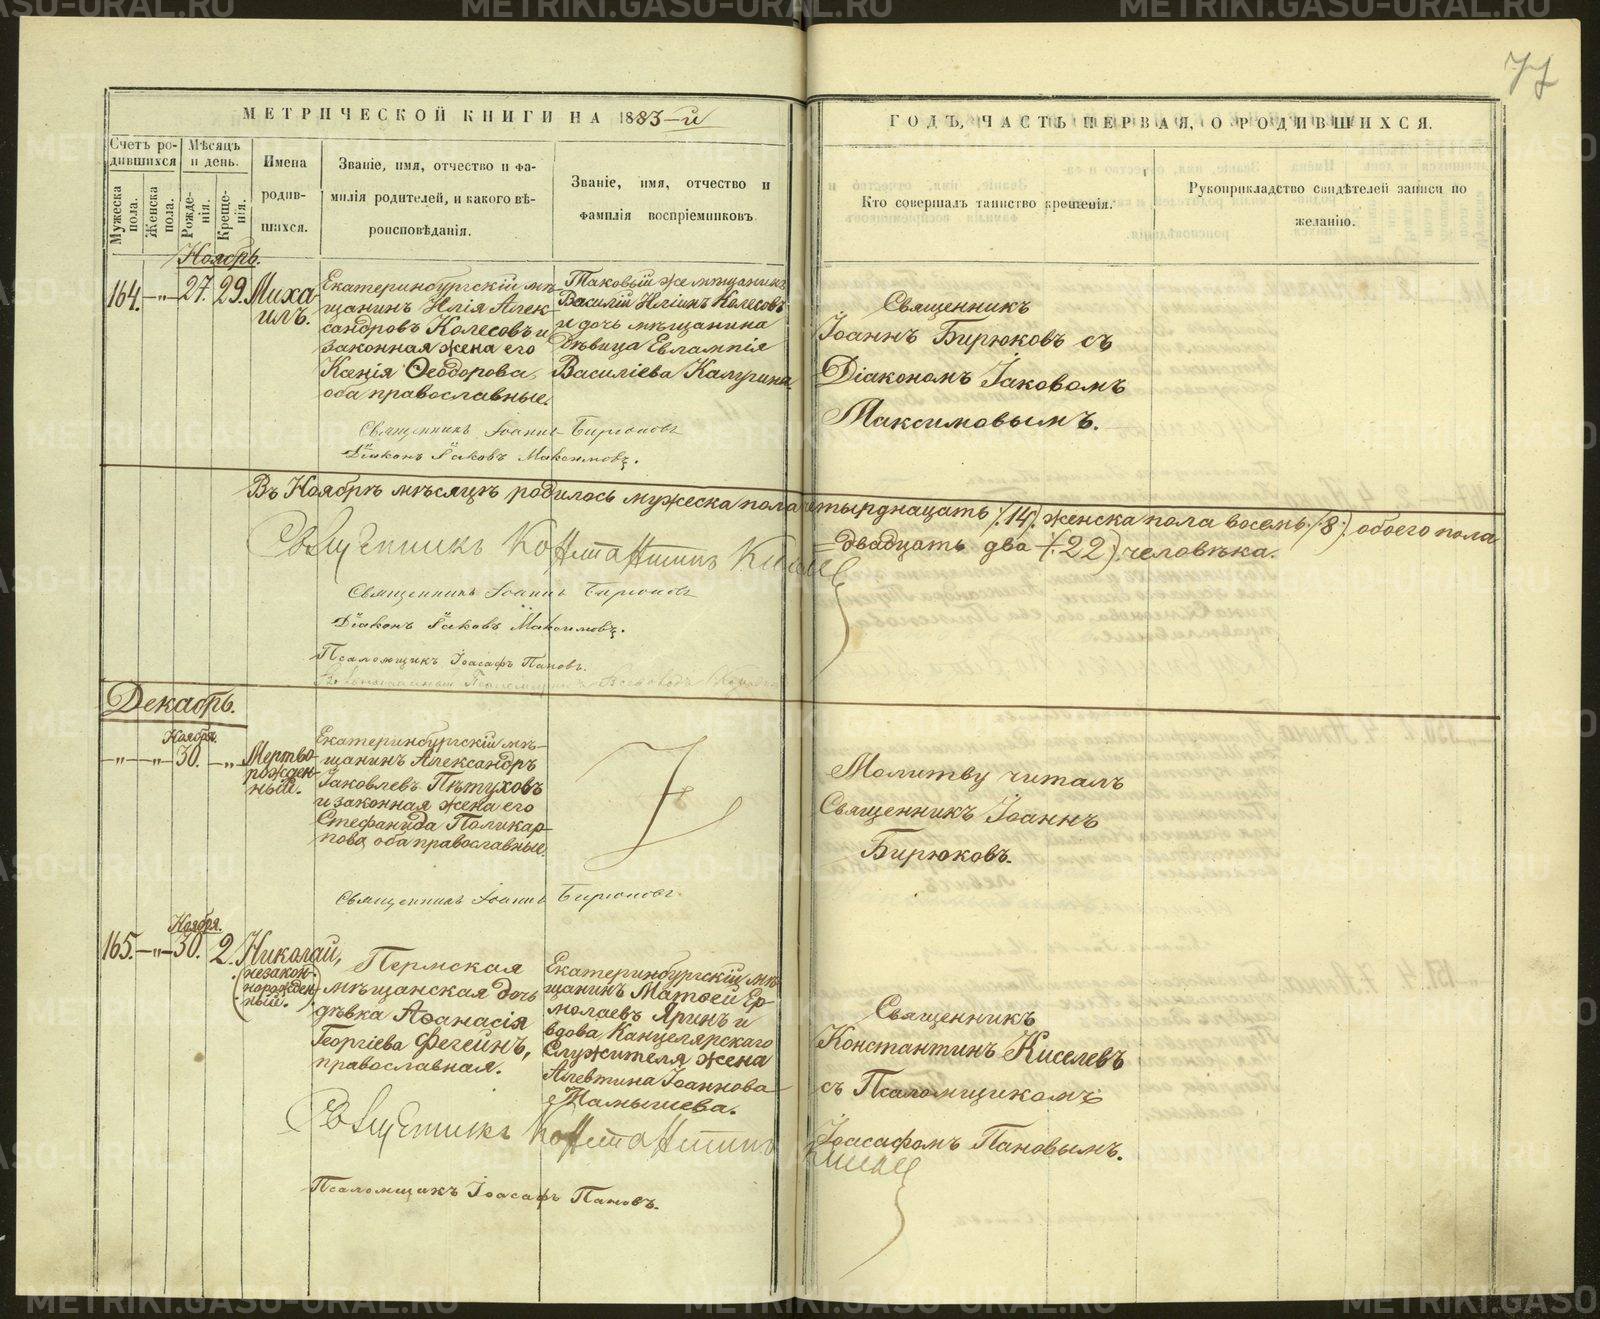 METRIKI.GASU-URAL.RU
77
МЕТРИЧЕСКОЙ КНИГИ НА 1883-й
ГОДЪ, ЧАСТЬ ПЕРВАЯ, О РОДИВШИХСЯ.
Счетъ ро-
дившихся
Мужеска пола.
Женска пола.
Мѣсяцъ
и день.
Рожде-
нія.
Креще-
нія.
Имена
родив-
шихся.
Званіе, имя, отчество и фа-
милія родителей, и какого вѣ-
роисповѣданія.
Званіе, имя, отчество и
фамилія воспріемниковъ.
Кто совершалъ таинство крещенія.
Рукоприкладство свидѣтелей записи по
желанію.
Ноябрь.
164. — „ — 27. 29.
Миха-
илъ.
Екатеринбургскій мѣ-
щанинъ Илія Алек-
сандровъ Колесовъ и
законная жена его
Ксенія Ѳеодорова,
оба православные.
Таковый же мѣщанинъ
Василій Иліинъ Колесовъ
и дочь мѣщанина
дѣвица Евлампія
Василіева Калугина.
Священникъ
Іоаннъ Бирюковъ съ
Діакономъ Іаковомъ
Максимовымъ.
Священникъ Іоаннъ Бирюковъ
Діаконъ Іаковъ Максимовъ.
Въ Ноябрѣ мѣсяцѣ родилось мужеска пола четырнадцать /.14/. женска пола восемь /.8./ обоего пола
двадцать два /.22/. человѣка.
Священникъ Константинъ Киселевъ
Священникъ Іоаннъ Бирюковъ
Діаконъ Іаковъ Максимовъ.
Псаломщикъ Іоасафъ Пановъ.
Декабрь.
Ноября.
— „ — „ — 30. — „
Мертво-
рожден-
ный.
Екатеринбургскій мѣ-
щанинъ Александръ
Іаковлевъ Пѣтуховъ
и законная жена его
Стефанида Поликар-
пова, оба православные.
Молитву читалъ
Священникъ Іоаннъ
Бирюковъ.
Священникъ Іоаннъ Бирюковъ.
Ноября.
165. — „ — 30. 2.
Николай,
(незакон-
норожден-
ный.)
Пермская
мѣщанская дочь
дѣвка Аѳанасія
Георгіева Фегеинъ,
православная.
Екатеринбургскій мѣ-
щанинъ Матѳей Ер-
молаевъ Яринъ и
вдова Канцелярскаго
Служителя жена
Алевтина Іоаннова
Мамышева.
Священникъ
Константинъ Киселевъ
съ Псаломщикомъ
Іоасафомъ Пановымъ.
Священникъ Константинъ Киселевъ
Псаломщикъ Іоасафъ Пановъ.